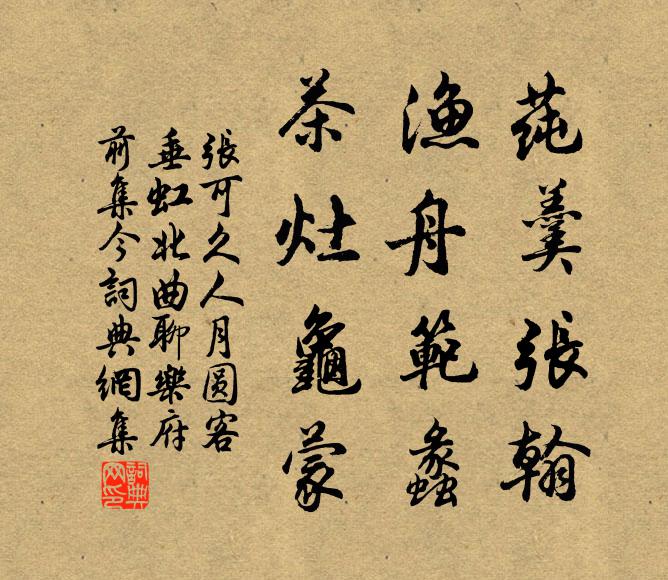 莼羹張翰
漁舟範蠡
茶灶龜蒙
張可久人月圆客
垂虹北曲聊樂府
前集今詞典網集
詞典網印